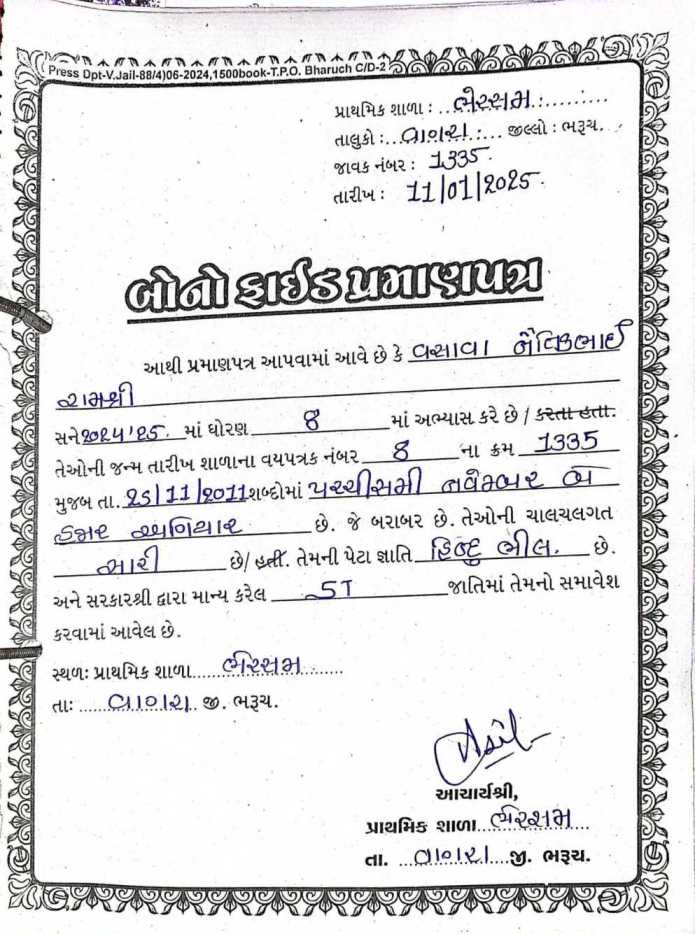 Press Dpt-V.Jail-88/4)06-2024,1500book-T.P.O. Bharuch C/D-2
પ્રાથમિક શાળા : ભેરસમ
તાલુકો : વાગરા જીલ્લો : ભરૂચ.
જાવક નંબર : 1335
તારીખ : 11/01/2025
બોનોફાઈડ પ્રમાણપત્ર
આથી પ્રમાણપત્ર આપવામાં આવે છે કે વસાવા નૈતિકભાઈ
રામશ્રી
સને ૨૦૨૪'૨૫. માં ધોરણ 8 માં અભ્યાસ કરે છે / કરતા હતા.
તેઓની જન્મ તારીખ શાળાના વયપત્રક નંબર 8 ના ક્રમ 1335
મુજબ તા. 25/11/2011 શબ્દોમાં પચ્ચીસમી નવેમ્બર બે
હજાર અગિયાર છે. જે બરાબર છે. તેઓની ચાલચલગત
સારી છે/ હતી. તેમની પેટા જ્ઞાતિ હિન્દુ ભીલ. છે.
અને સરકારશ્રી દ્વારા માન્ય કરેલ ST જાતિમાં તેમનો સમાવેશ
કરવામાં આવેલ છે.
સ્થળઃ પ્રાથમિક શાળા ભેરસમ
તાઃ વાગરા જી. ભરૂચ.
આચાર્યશ્રી,
પ્રાથમિક શાળા ભેરસમ
તા. વાગરા જી. ભરૂચ.